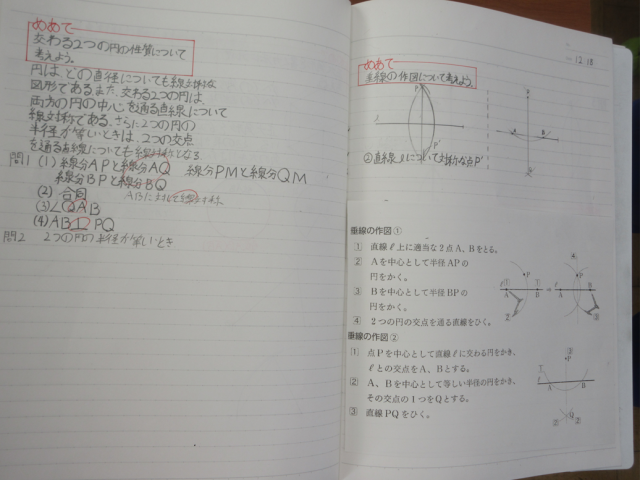 めあて
交わる2つの円の性質について
考えよう。
円はどの直径についても線対称な
図形である。また、交わる2つの円は
両方の円の中心を通る直線について
線対称である。さらに2つの円の
半径が等しいときは、2つの交点
を通る直線についても線対称となる
問1 (1) 線分APと線分AQ 線分PMと線分QM
線分BPと線分BQ
(2) 合同
ABに対して線対称
(3) ∠QAB
(4) AB⊥PQ
問2 2つの円の半径が等しいとき
12.18
めあて
垂線の作図について考えよう。
P
ℓ
P'
A
B
②直線ℓについて対称な点P'
垂線の作図①
① 直線ℓ上に適当な2点A、Bをとる。
② Aを中心として半径APの
円をかく。
③ Bを中心として半径BPの
円をかく。
④ 2つの円の交点を通る直線をひく。
垂線の作図②
① 点Pを中心として直線ℓに交わる円をかき、
ℓとの交点をA、Bとする。
② A、Bを中心として等しい半径の円をかき、
その交点の1つをQとする。
③ 直線PQをひく。